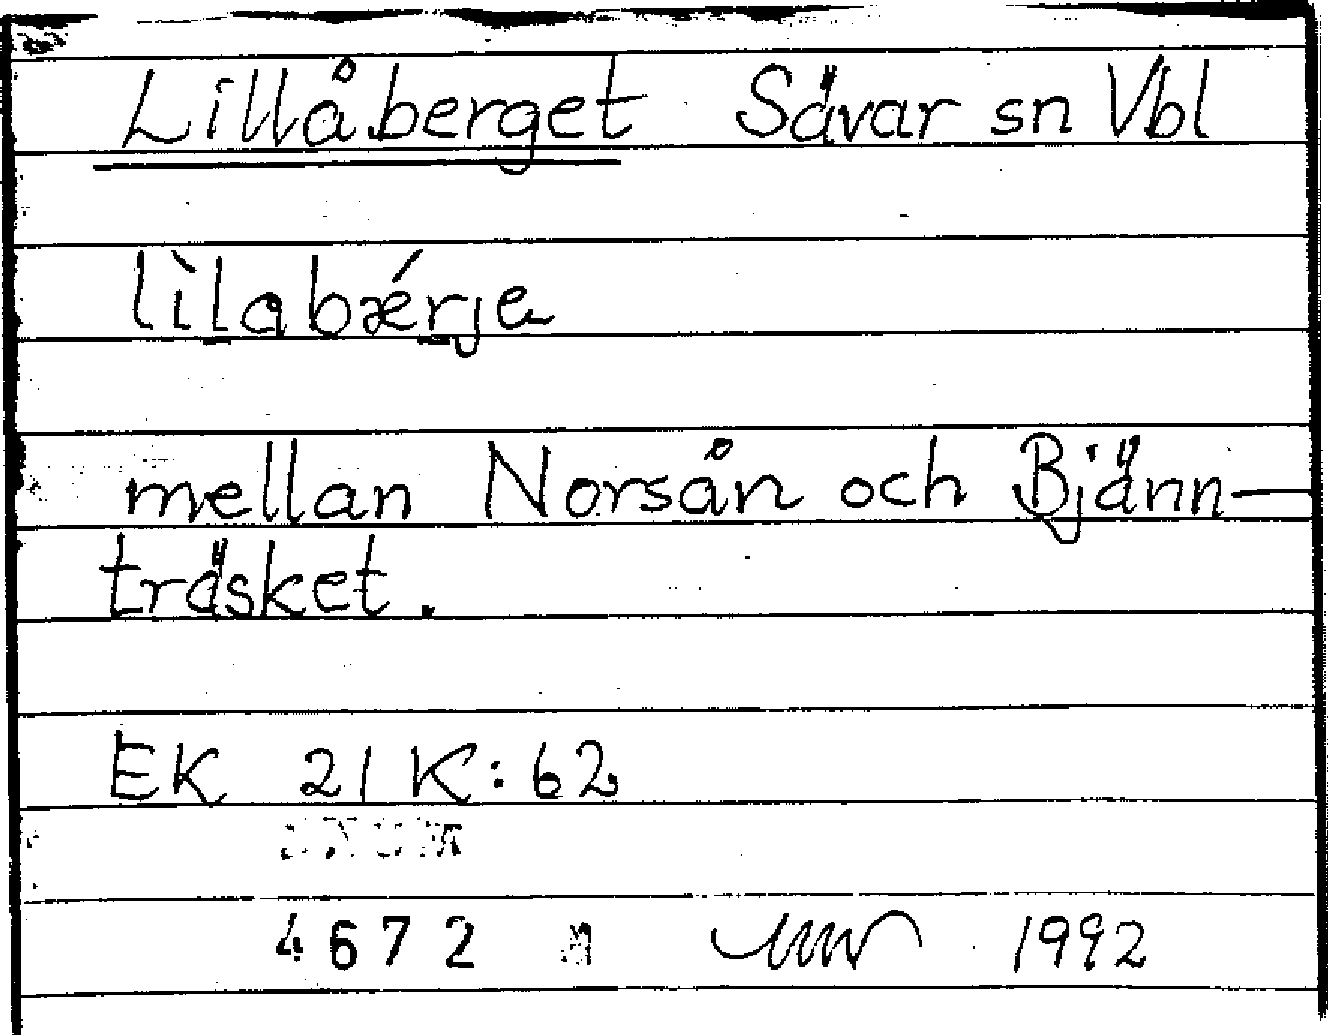 Lillåberget Sävar sn Vbl
lìlabǽrje
mellan Norsån och Bjänn-
träsket.
EK 21 K:62
4672 M 1992